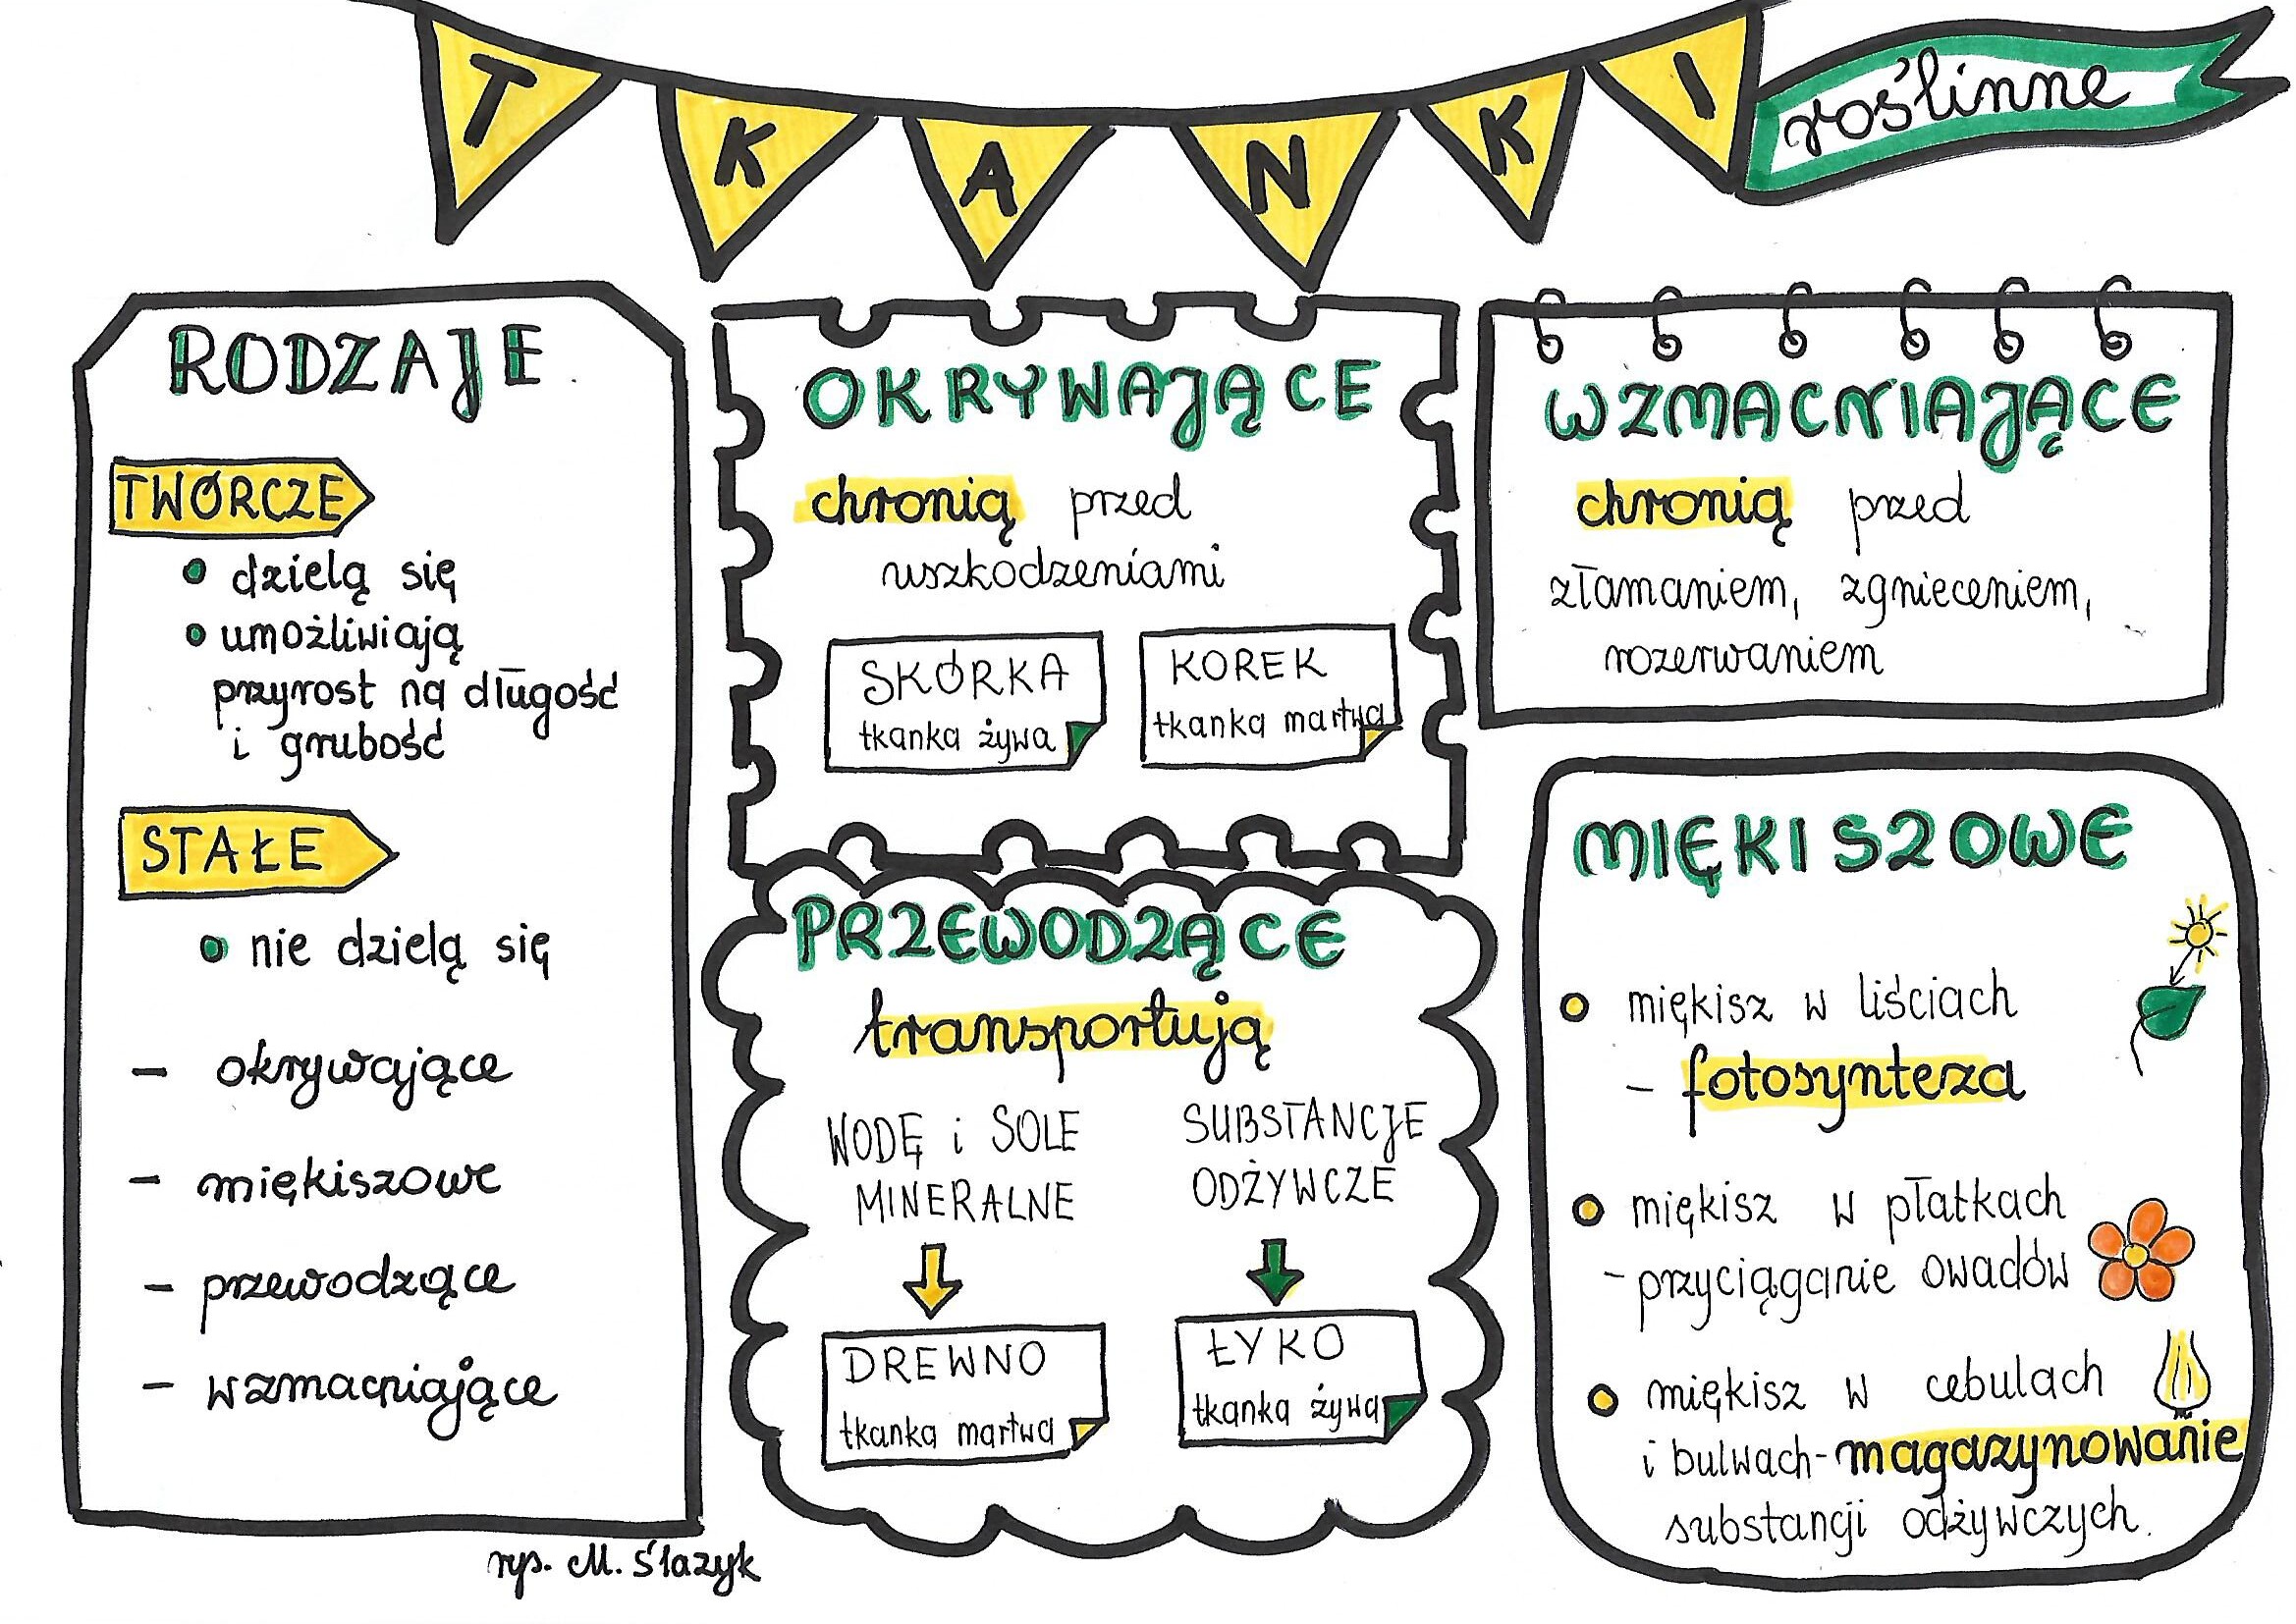 TKANKI roślinne
RODZAJE
TWÓRCZE
dzielą się
umożliwiają
przyrost na długość
i grubość
STAŁE
nie dzielą się
- okrywające
- miękiszowe
- przewodzące
- wzmacniające
rys. M. Ślazyk
OKRYWAJĄCE
chronią przed
uszkodzeniami
SKÓRKA
tkanka żywa
KOREK
tkanka martwa
PRZEWODZĄCE
transportują
WODĘ i SOLE
MINERALNE
DREWNO
tkanka martwa
SUBSTANCJE
ODŻYWCZE
ŁYKO
tkanka żywa
WZMACNIAJĄCE
chronią przed
złamaniem, zgnieceniem,
rozerwaniem
MIĘKISZOWE
miękisz w liściach
- fotosynteza
miękisz w płatkach
- przyciąganie owadów
miękisz w cebulach
i bulwach - magazynowanie
substancji odżywczych.